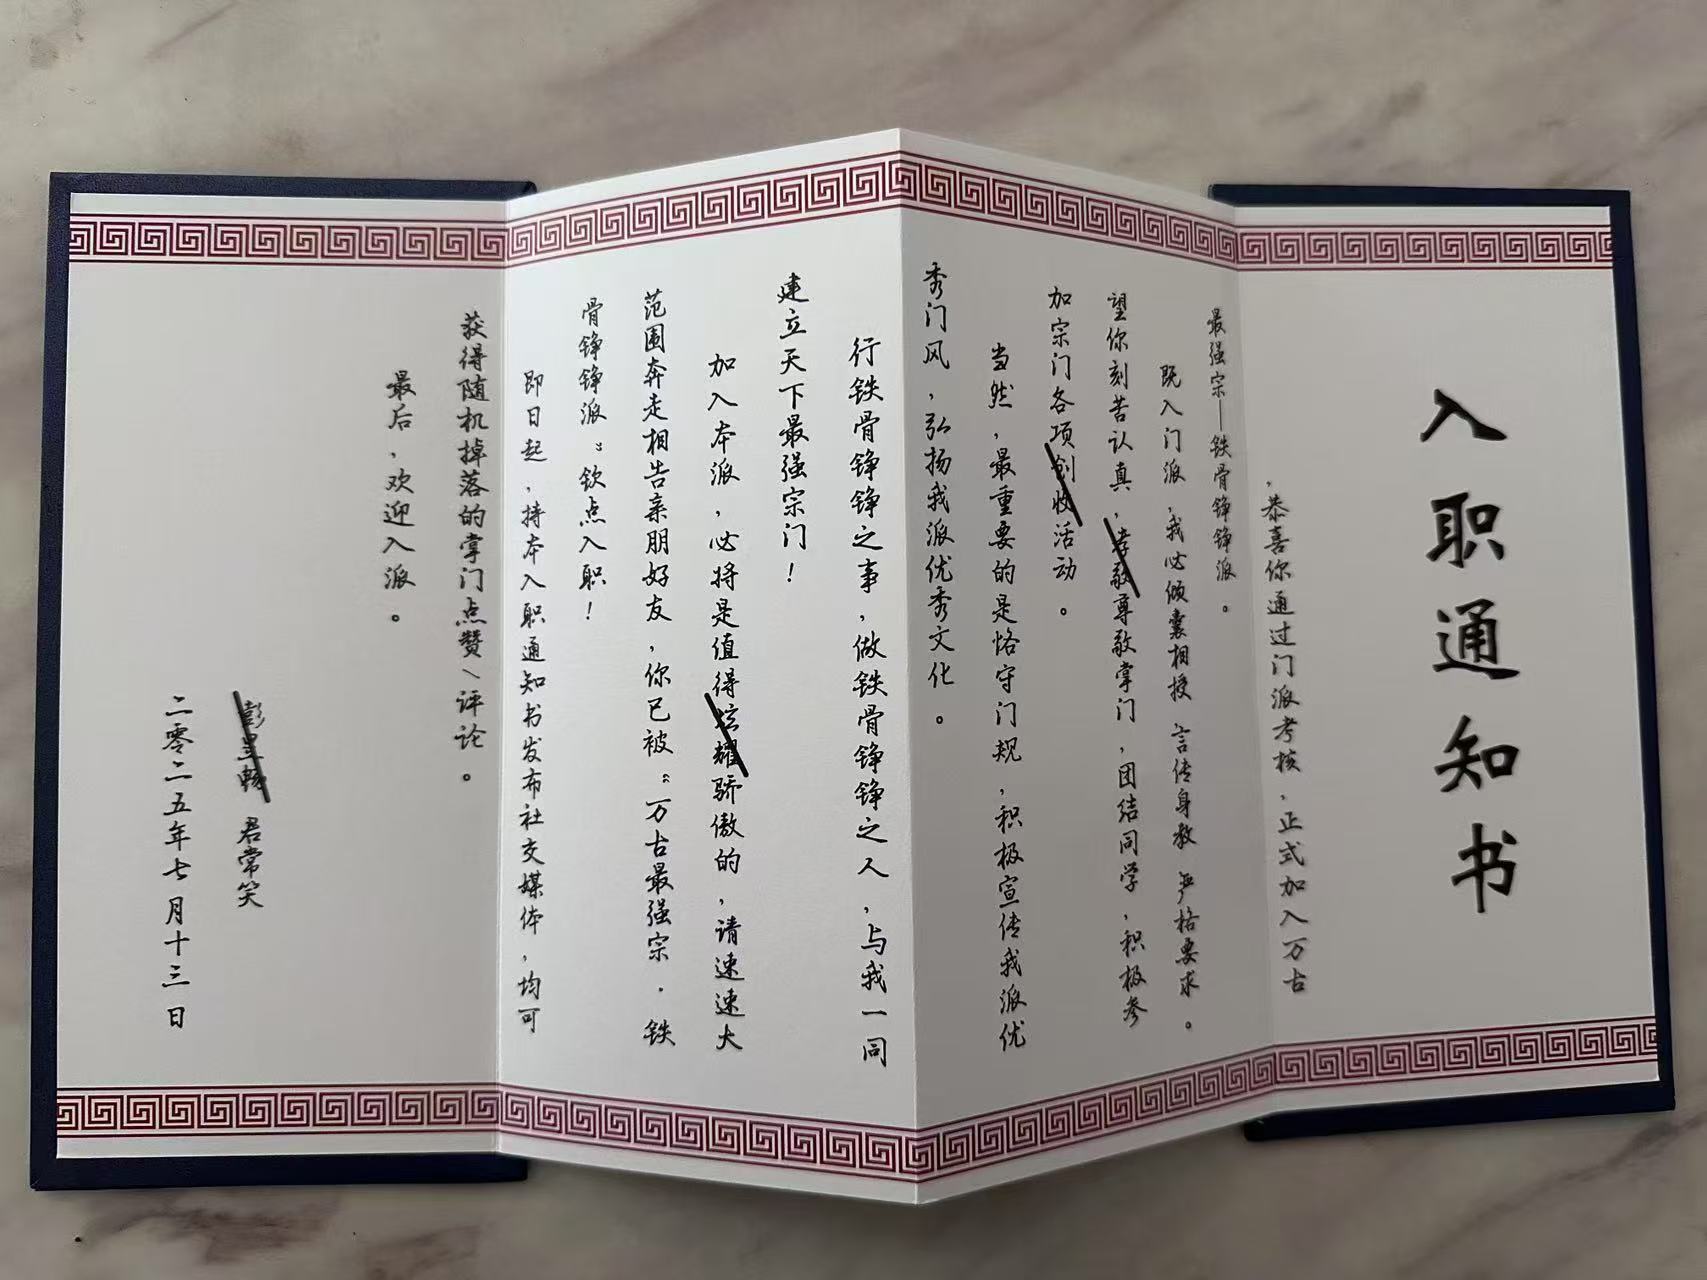 入职通知书
，恭喜你通过门派考核，正式加入万古
最强宗——铁骨铮铮派。
既入门派，我必倾囊相授 言传身教 严格要求。
望你刻苦认真，孝敬尊敬掌门，团结同学，积极参
加宗门各项创收活动。
当然，最重要的是恪守门规，积极宣传我派优
秀门风，弘扬我派优秀文化。
行铁骨铮铮之事，做铁骨铮铮之人，与我一同
建立天下最强宗门！
加入本派，必将是值得炫耀骄傲的，请速速大
范围奔走相告亲朋好友，你已被“万古最强宗·铁
骨铮铮派”钦点入职！
即日起，持本入职通知书发布社交媒体，均可
获得随机掉落的掌门点赞\评论。
最后，欢迎入派。
彭昱畅 君常笑
二零二五年七月十三日